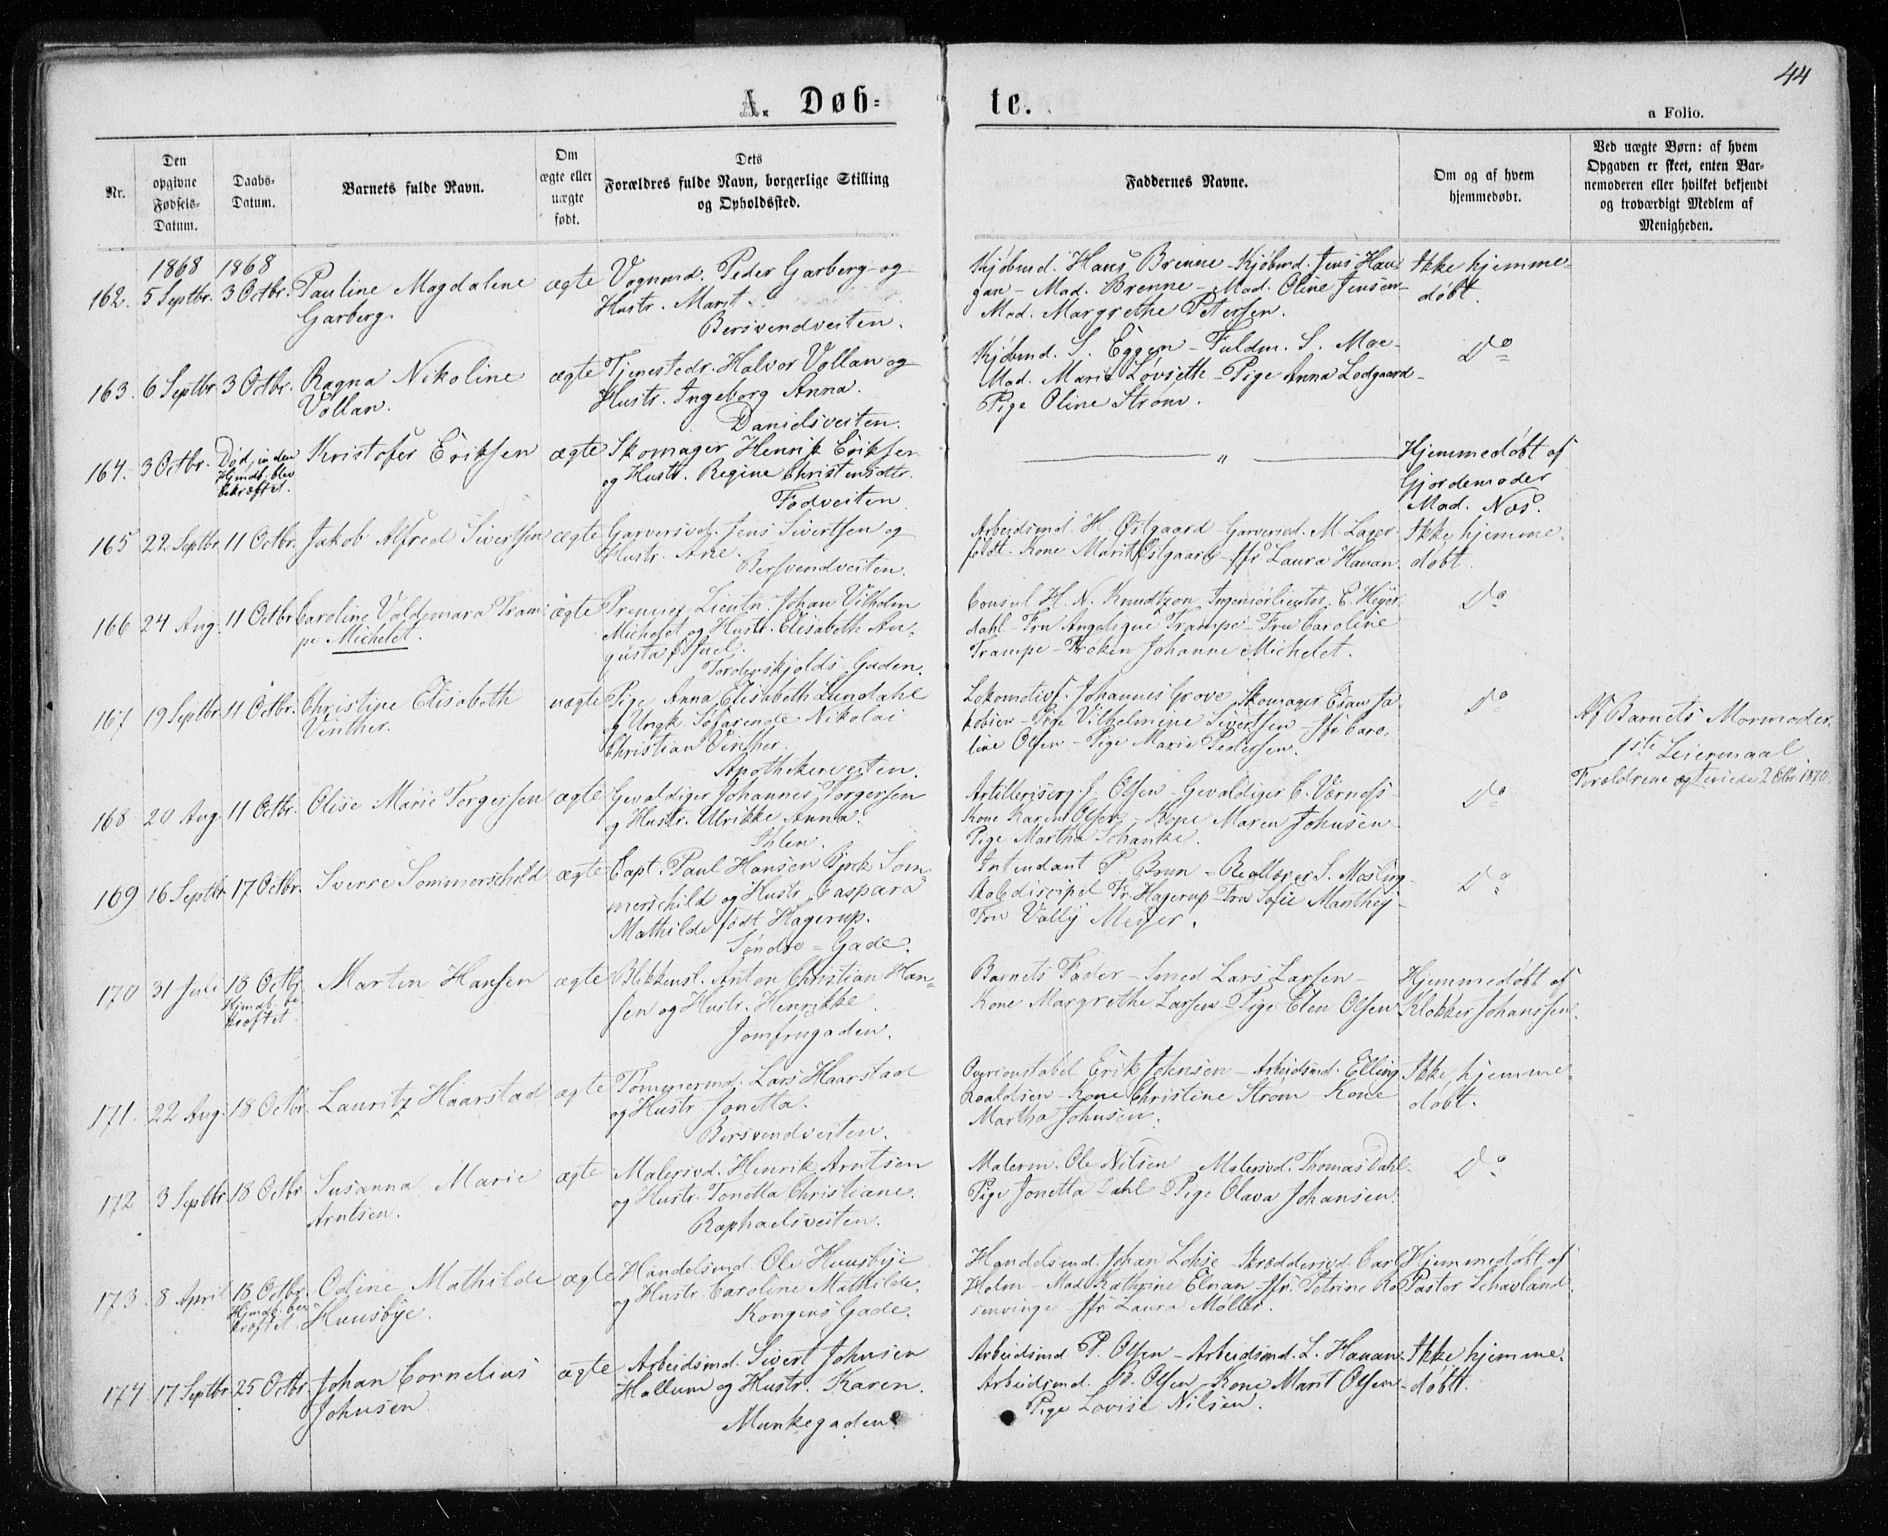 44
A. Døb-
te.
a Folio.
Nr.
Den
opgivne
Fødsels-
Datum.
Daabs-
Datum.
Barnets fulde Navn.
Om
ægte eller
uægte
født.
Dets
Forældres fulde Navn, borgerlige Stilling
og Opholdssted.
Faddernes Navne.
Om og af hvem
hjemmedøbt.
Ved uægte Børn: af hvem
Opgaven er skeet, enten Bar-
nemoderen eller hvilket bekjendt
og troværdigt Medlem af
Menigheden.
1868 1868
162. 5 Septbr. 3 Octbr. Pauline Magdalene
Garberg.
ægte
Vognmd. Peder Garberg og
Hustr. Marit
Bersvendveiten.
Kjøbmd. Hans Brenne - Kjøbmd. Jens Hau-
gan - Mad. Brenne - Mad. Oline Jensen -
Mad. Margrethe Petersen.
Ikke hjemme-
døbt.
163. 6 Septbr. 3 Octbr. Ragna Nikoline
Vollan.
ægte
Tjenestedr. Halvor Vollan og
Hustr. Ingeborg Anna.
Danielsveiten.
Kjøbmd. S. Eggen - Fuldm. S. Moe -
Mad. Marie Løvseth - Pige Anna Lodgaard -
Pige Oline Strøm.
Do
164. 3 Octbr. Død, inden
Hjmdb. blev
bekræftet.
Kristofer Eriksen
ægte
Skomager Henrik Eriksen
og Hustr. Regine Christensdtr.
Fodveiten
"
Hjemmedøbt af
Gjordemoder
Mad. Næs.
165 22 Septbr. 11 Octbr. Jakob Alfred Sivertsen
ægte
Garversvd. Jens Sivertsen og
Hustr. Ane.
Bersvendveiten.
Arbeidsmd. H. Østgaard - Garversvd. M. Lager-
foldt. Kone Marit Østgaard - Jfr Laura Hauan
Ikke hjemme-
døbt.
166 24 Aug. 11 Octbr. Caroline Valdemara Tram-
pe Michelet.
ægte
Premier Lieutn. Johan Vilhelm
Michelet og Hustr. Elisabeth Au-
gusta f. Juel.
Tordenskjolds Gaden.
Consul H. N. Knudtzon Ingeniørlieutn. E. Heyer-
dahl - Fru Angelique Trampe - Fru Caroline
Trampe - Frøken Johanne Michelet.
Do
167 19 Septbr. 11 Octbr. Christine Elisabeth
Vinther.
uægte
Pige Anna Elisabeth Lundahl
og Ungk. Søfarende Nikolai
Christian Vinther.
Apothekerveiten.
Lokomotivf. Johannes Grove Skomager Esau Ja-
kobsen - Pige Vilhelmine Sivertsen - Jfr Caro-
line Olsen - Pige Marie Pedersen.
Do
Af Barnets Mormoder.
1ste Leiermaal
Forældrene ægteviede 2 Oktbr. 1870.
168 20 Aug. 11 Octbr. Olise Marie Torgersen
ægte
Gevaldiger Johannes Torgersen
og Hustr. Ulrikke Anna.
Ihlen.
Artilleriserg. J. Olsen - Gevaldiger C. Værness -
Kone Karen Olsen - Kone Maren Johnsen
Pige Martha Schanke.
Do
169 16 Septbr. 17 Octbr. Sverre Sommerschild
ægte
Capt. Paul Hansen Birk Som-
merschild og Hustr. Caspara
Mathilde født Hagerup.
Søndre-Gade.
Intendant P. Brun - Reallærer S. Mosling -
Skolediscipel Fr. Hagerup - Fru Sofie Manthey -
Fru Vally Meyer.
Do
170 31 Juli 18 Octbr.
Hjmdb. be-
kræftet.
Martin Hansen
ægte
Blikkensl. Anton Christian Han-
sen og Hustr. Henrikke
Jomfrugaden.
Barnets Fader - Smed Lars Larsen -
Kone Margrethe Larsen - Pige Elen Olsen
Hjemmedøbt af
Klokker Johanssen.
171. 22 Aug. 18 Octbr. Lauritz Haarstad
ægte
Tømmermd. Lars Haarstad
og Hustr. Jonetta.
Bersvendveiten.
Overconstabel Erik Johnsen - Arbeidsmd. Elling
Roaldsen - Kone Christine Strøm Kone
Martha Johnsen.
Ikke hjemme-
døbt.
172 3 Septbr. 18 Octbr. Susanna Marie
Arntsen.
ægte
Malersvd. Henrik Arntsen
og Hustr. Tonetta Christiane.
Raphaelsveiten.
Malerm. Ole Nilsen Malersvd. Thomas Dahl.
Pige Jonetta Dahl - Pige Olava Johansen.
Do
173. 8 April 18 Octbr.
Hjmdb. be-
kræftet
Odine Mathilde
Huusbye.
ægte
Handelsmd. Ole Huusbye
og Hustr. Caroline Mathilde.
Kongens Gade.
Handelsmd. Johan Lokse - Skræddersvd. Carl
Holm - Mad. Kathrine Elnan - Jfr. Petrine Ro-
senvinge Jfr Laura Møller.
Hjemmedøbt af
Pastor Schavland.
174 17 Septbr. 25 Octbr. Johan Cornelius
Johnsen
ægte
Arbeidsmd. Sivert Johnsen
Hallum og Hustr. Karen.
Munkegaden.
Arbeidsmd P. Olsen - Arbeidsmd. L. Hauan -
Arbeidsmd. B. Olsen - Kone Marit Olsen -
Pige Lovise Nilsen.
Ikke hjemme-
døbt.